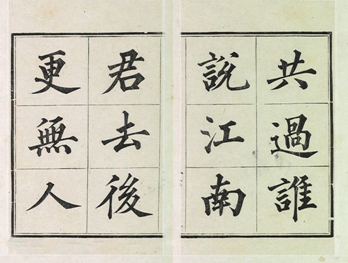 共過誰
說江南
君去後
更無人